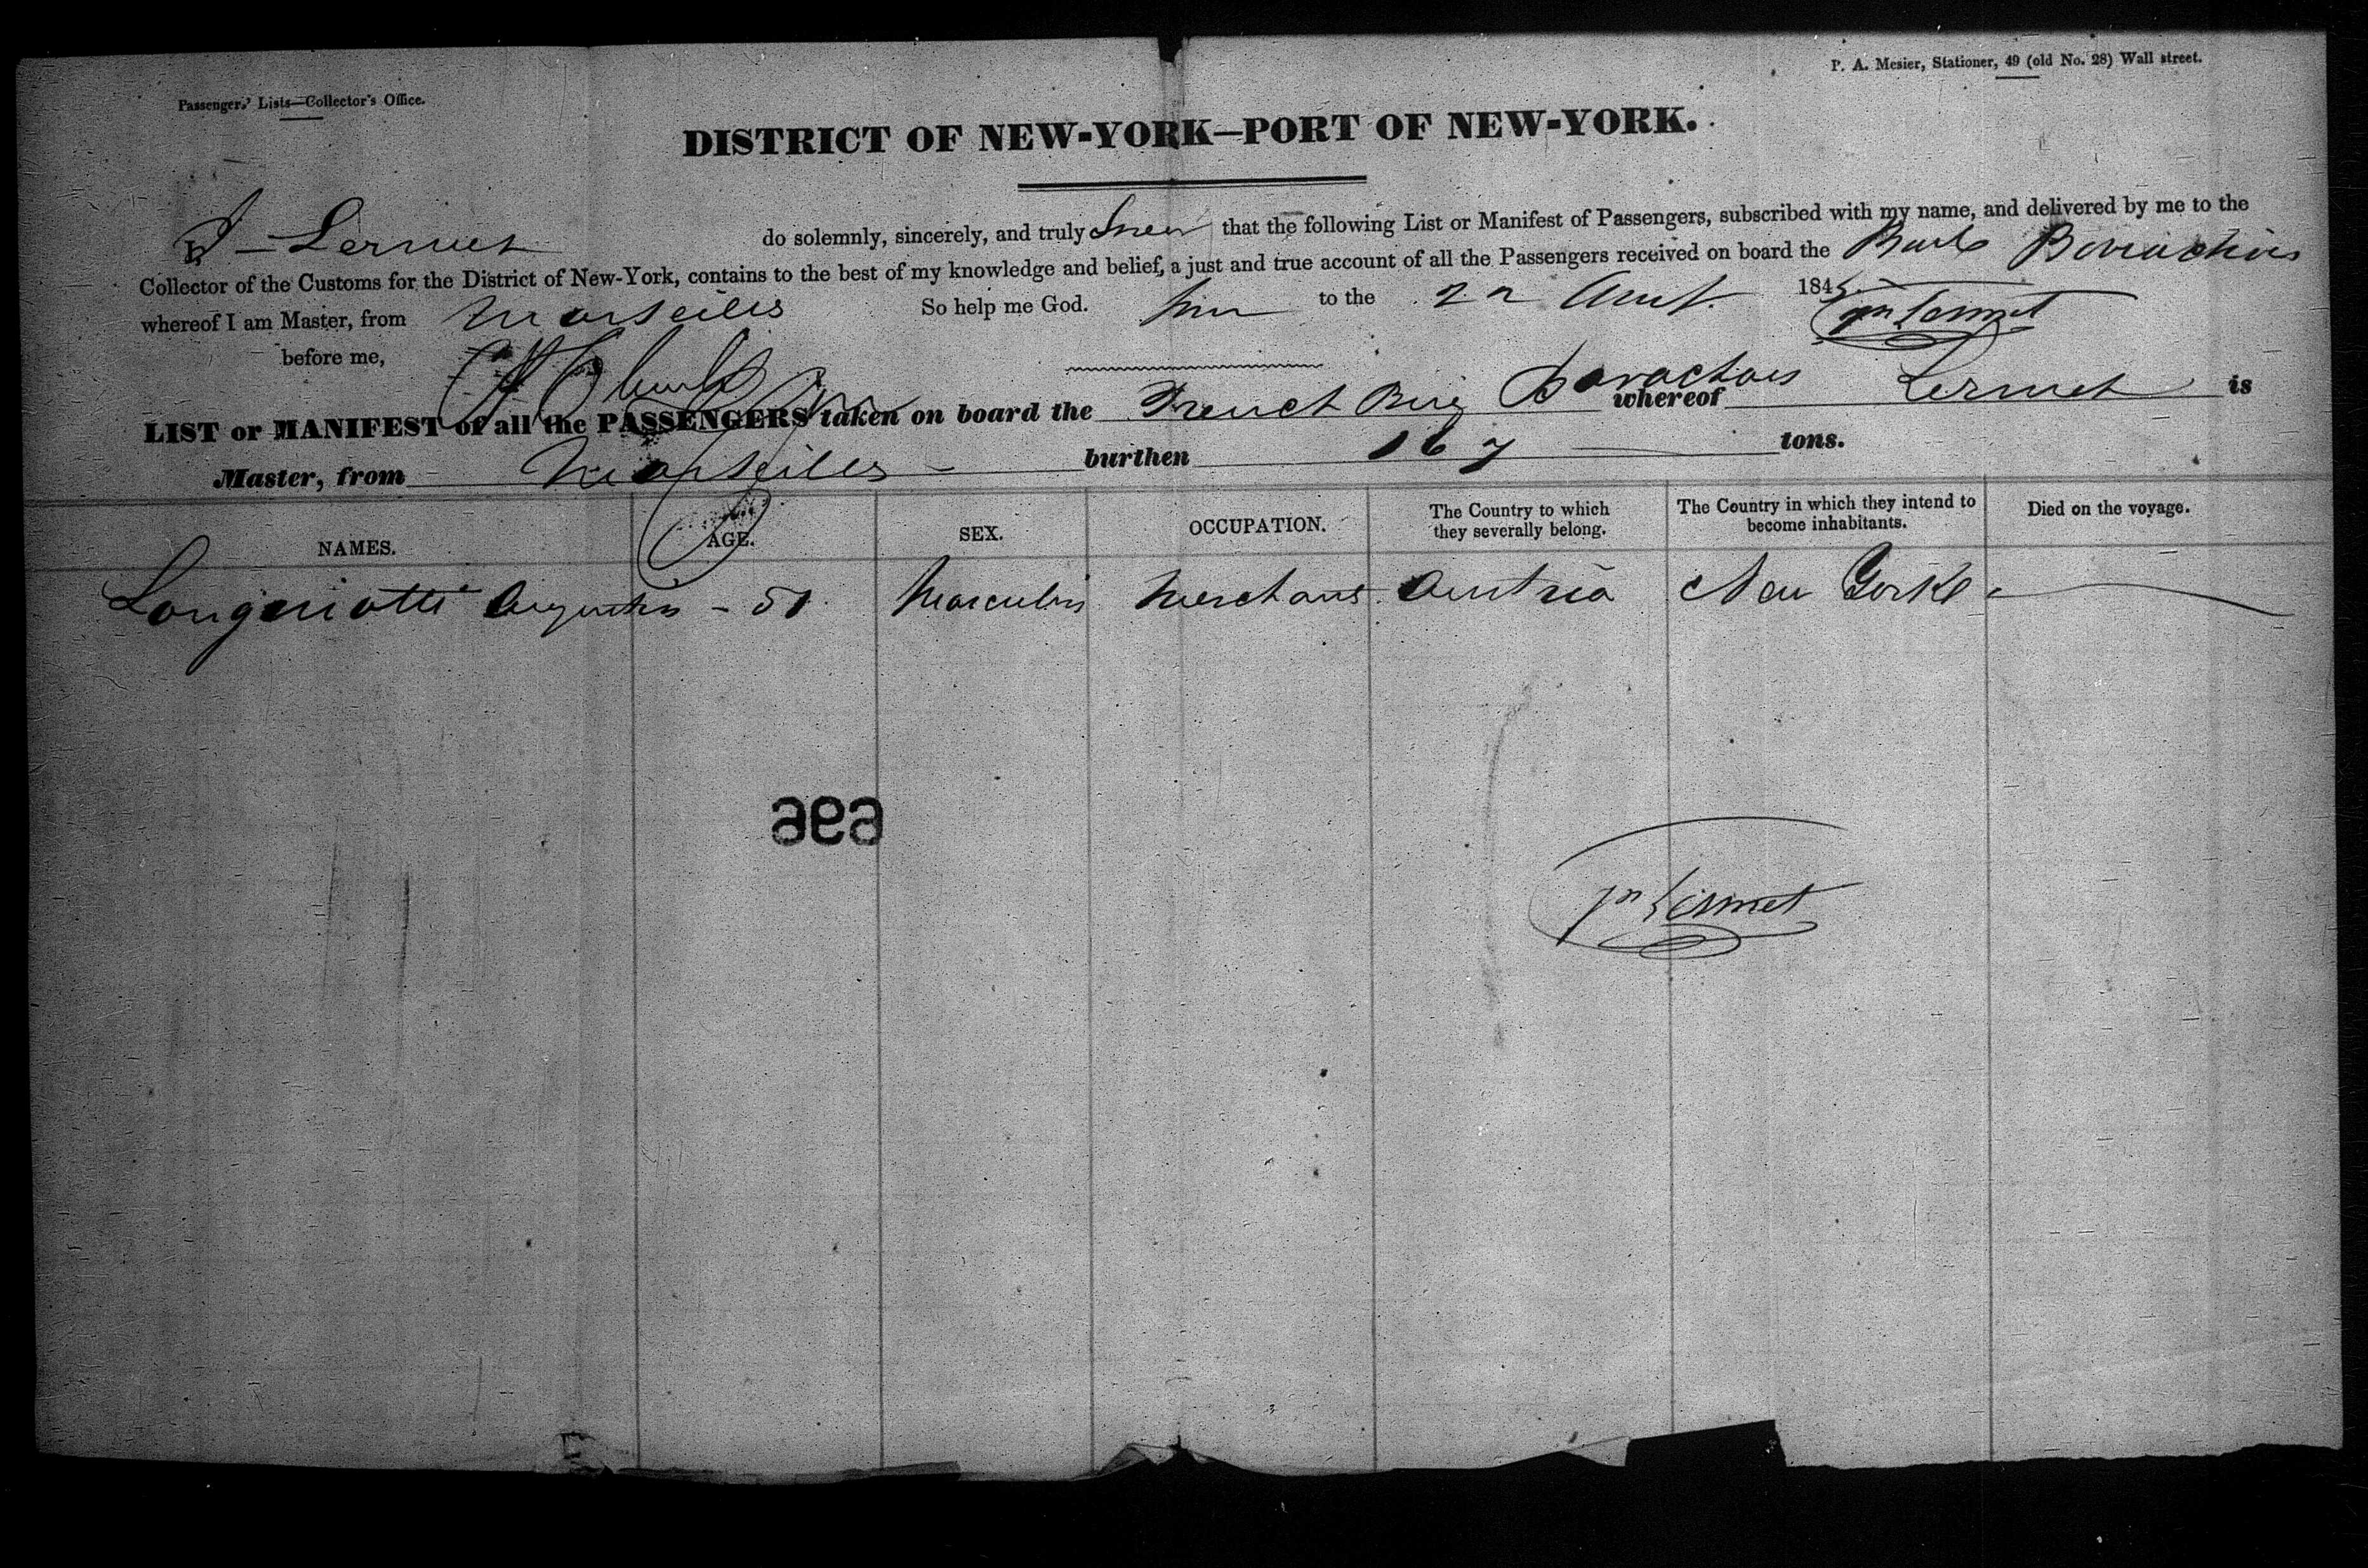 P. A. Mesier, Stationer, 49 (old No. 28) Wall street.
Passengers' Lists—Collector's Office.
DISTRICT OF NEW-YORK—PORT OF NEW-YORK.
I - Lermet do solemnly, sincerely, and truly Swear that the following List or Manifest of Passengers, subscribed with my name, and delivered by me to the
Collector of the Customs for the District of New-York, contains to the best of my knowledge and belief, a just and true account of all the Passengers received on board the
whereof I am Master, from Marseilles So help me God. to the 22 184
before me,
LIST or MANIFEST of all the PASSENGERS taken on board the French Brig Barachois whereof Lermet is
Master, from Marseilles burthen 167 tons.
NAMES. AGE. SEX. OCCUPATION. The Country to which they severally belong. The Country in which they intend to become inhabitants. Died on the voyage.
Augustin - Masculin Merchant Austria New Yorke
969
Lermet